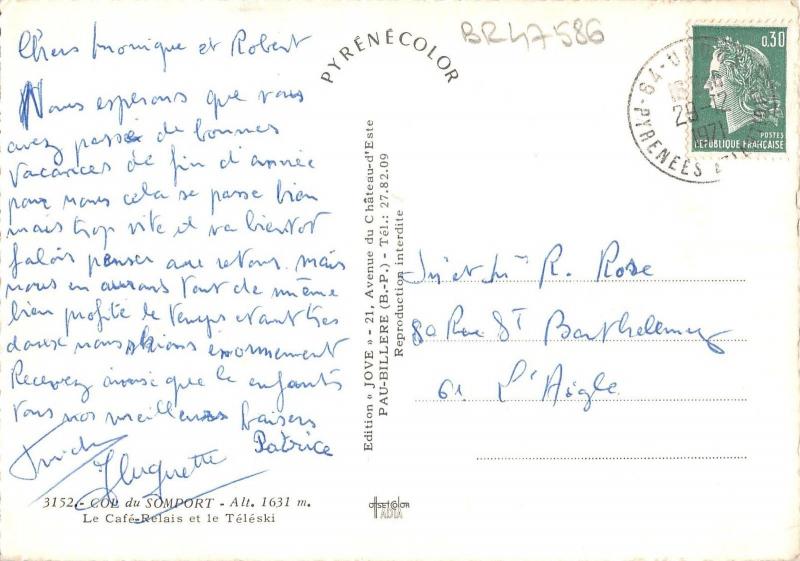 BR47586
PYRÉNÉCOLOR
Chers Monique et Robert
Nous esperons que vous
avez passé de bonnes
vacances de fin d'année
pour nous cela se passe bien
mais trop vite il va bientot
falois penser au retour. mais
nous en aurons tout de même
bien profité le temps etant tres
doux nous skions énormement
Recevez ainsi que le enfants
tous nos meilleurs baisers
Patrice
Huguette
3152.- COL du SOMPORT - Alt. 1631 m.
Le Café-Relais et le Téléski
Edition « JOVE » - 21, Avenue du Château-d'Este
PAU-BILLERE (B.-P.) - Tél.: 27.82.09
Reproduction interdite
offset color
0,30
POSTES
REPUBLIQUE FRANÇAISE
64
1971
PYRENEES
Mr et Mme R. Rose
80 Rue St Barthelemy
61 L'Aigle